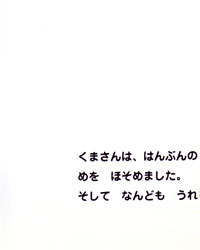 くまさんは、はんぶんの
めを　ほそめました。
そして　なんども　うれ